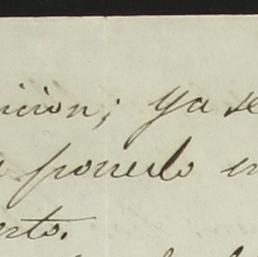 icion; ya se
ponerlo en
erto.